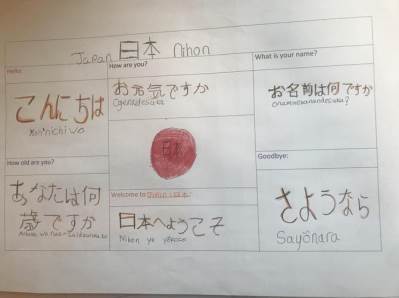 Japan 日本 Nihon
Hello:
こんにちは
Kon'nichi wa
How are you?
お元気ですか
Ogenkidesuka
What is your name?
お名前は何ですか
日本
How old are you?
あなたは何
歳ですか
Welcome to Japan 日本
日本へようこそ
Nihon yōkoso
Goodbye:
さようなら
Sayōnara